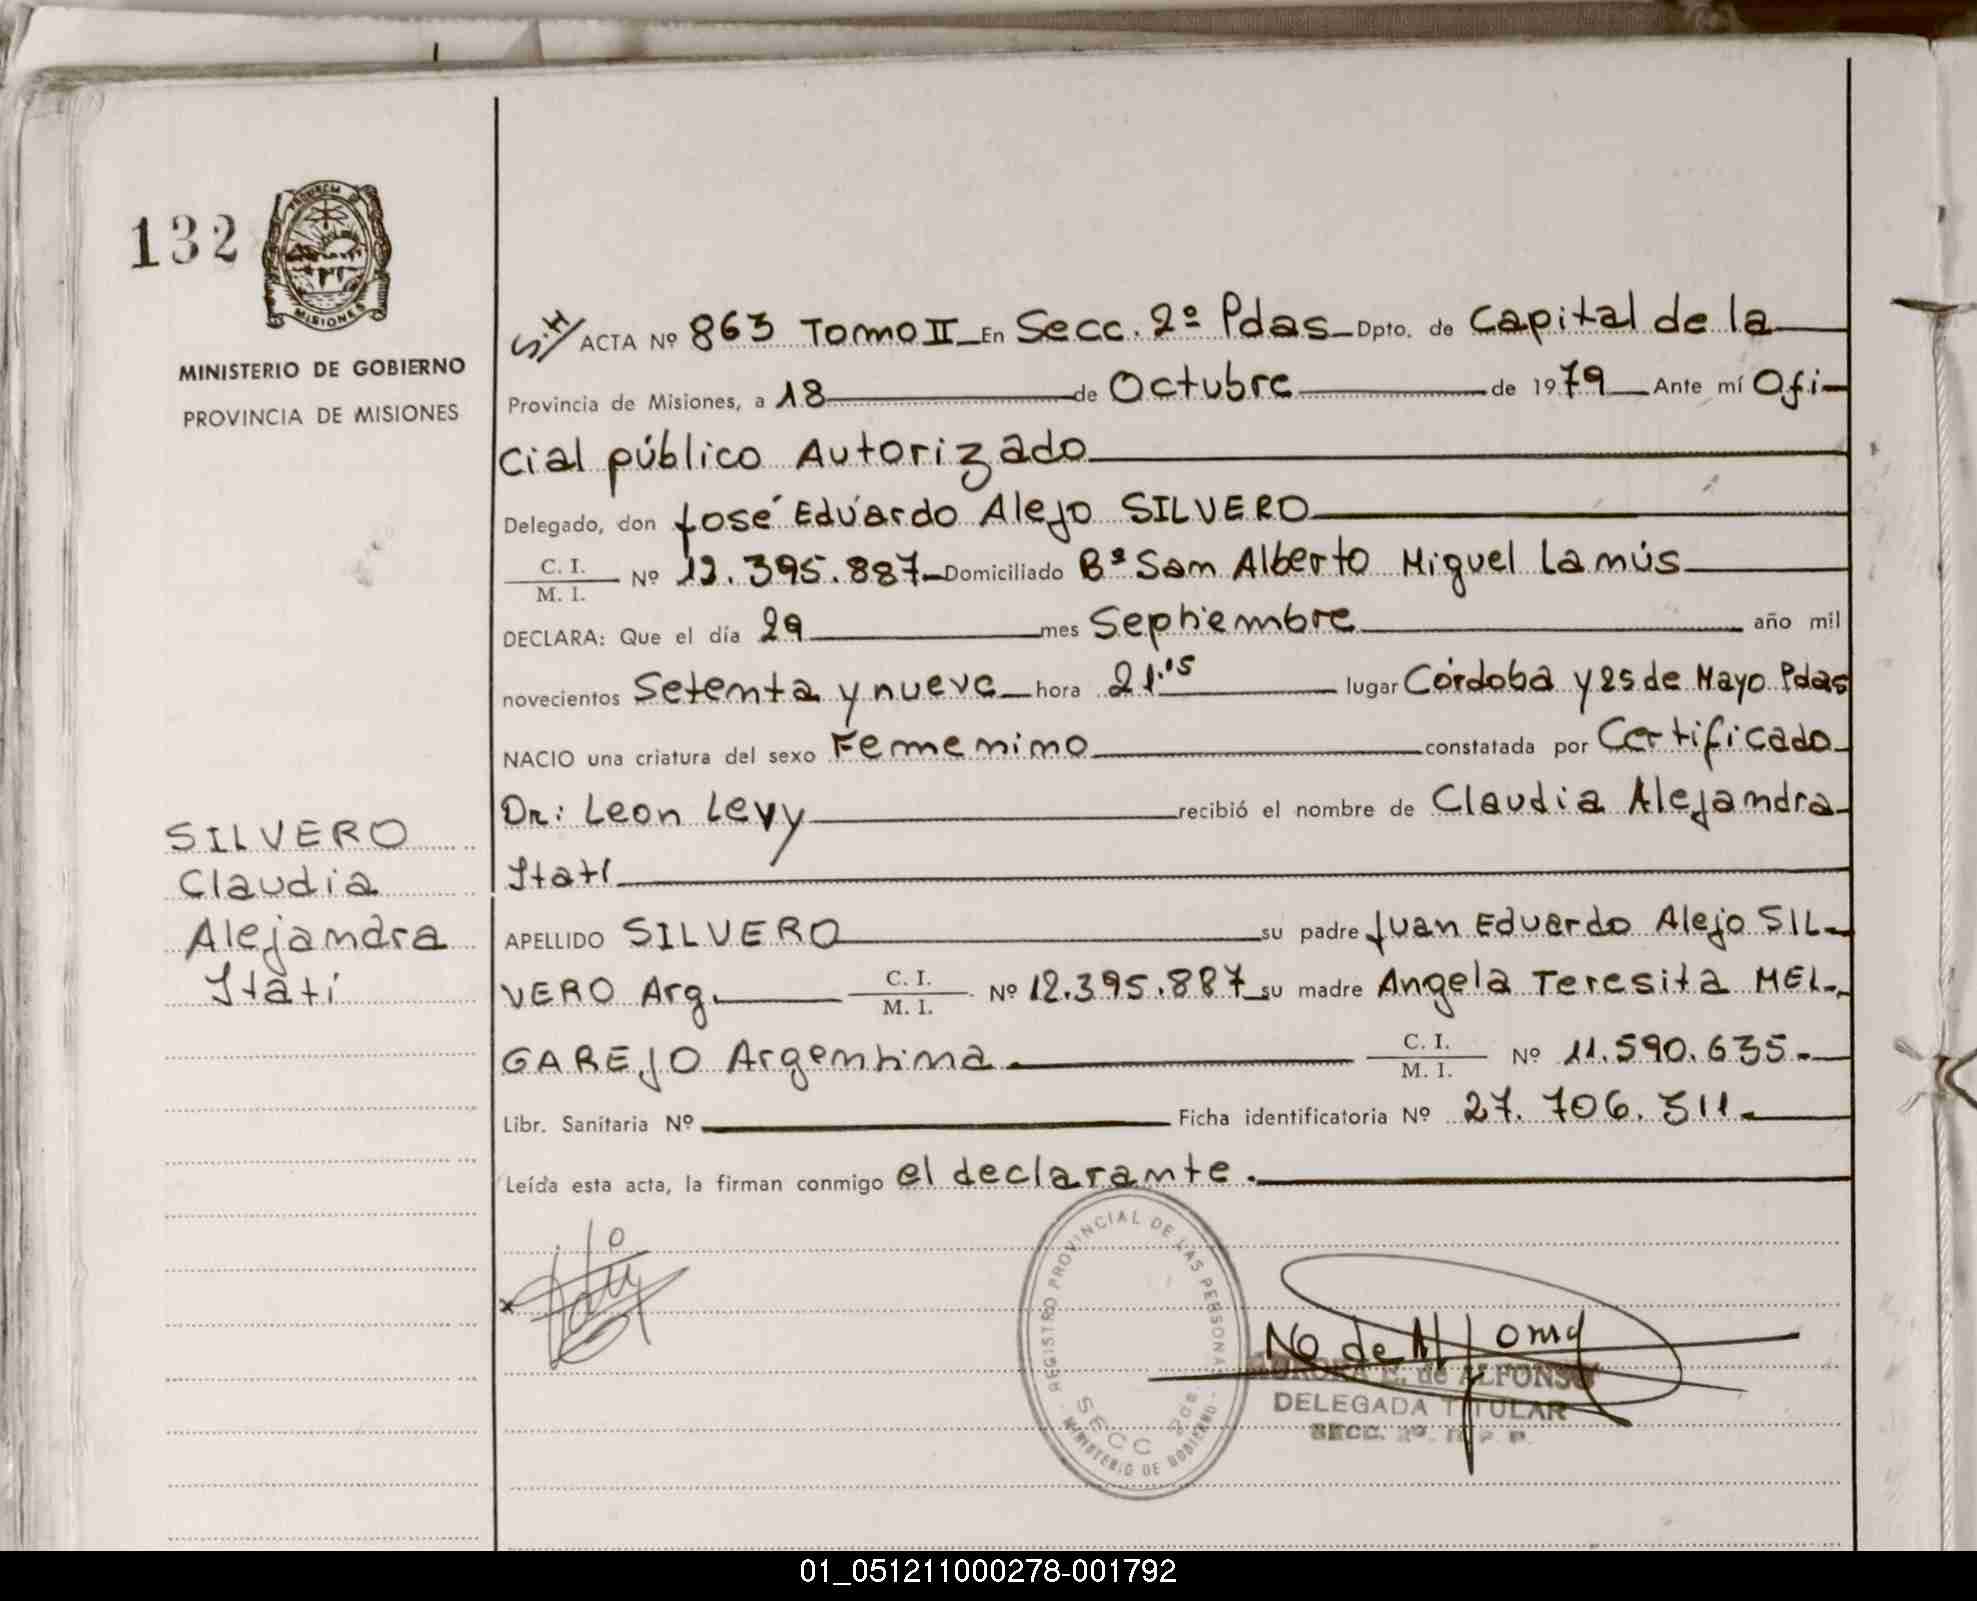 132
PROVINCIA DE
MISIONES
MINISTERIO DE GOBIERNO
PROVINCIA DE MISIONES
S.H/ ACTA Nº 863 Tomo II En Secc. 2º Pdas Dpto. de Capital de la
Provincia de Misiones, a 18 de Octubre de 1979 Ante mí Ofi-
cial público Autorizado
Delegado, don José Eduardo Alejo SILVERO
C. I.
M. I. Nº 12.395.887 Domiciliado Bº San Alberto Miguel Lamús
DECLARA: Que el día 29 mes Septiembre año mil
novecientos Setenta y nueve hora 21:15 lugar Córdoba y 25 de Mayo Pdas
NACIO una criatura del sexo Femenino constatada por Certificado
Dr: Leon Levy recibió el nombre de Claudia Alejandra
Itatí
SILVERO
Claudia
Alejandra
Itatí
APELLIDO SILVERO su padre Juan Eduardo Alejo SIL-
VERO Arg. C. I.
M. I. Nº 12.395.887 su madre Angela Teresita MEL-
GAREJO Argentina C. I.
M. I. Nº 11.590.635.-
Libr. Sanitaria Nº Ficha identificatoria Nº 27.706.311.
Leída esta acta, la firman conmigo el declarante.
x
REGISTRO PROVINCIAL DE LAS PERSONAS
SECC
MINISTERIO DE GOBIERNO
E. de ALFONSO
DELEGADA TITULAR
SECC. 2º
01_051211000278-001792